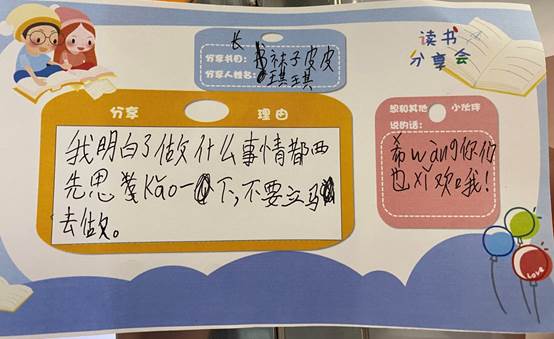 读书
分享会
分享书目:长袜子皮皮
分享人姓名:琪琪
分享 理由
我明白了做什么事情都西
先思考kǎo一下,不要立马
去做。
想和其他小伙伴
说的话:
希wàng你们
也xǐ欢我!
Love